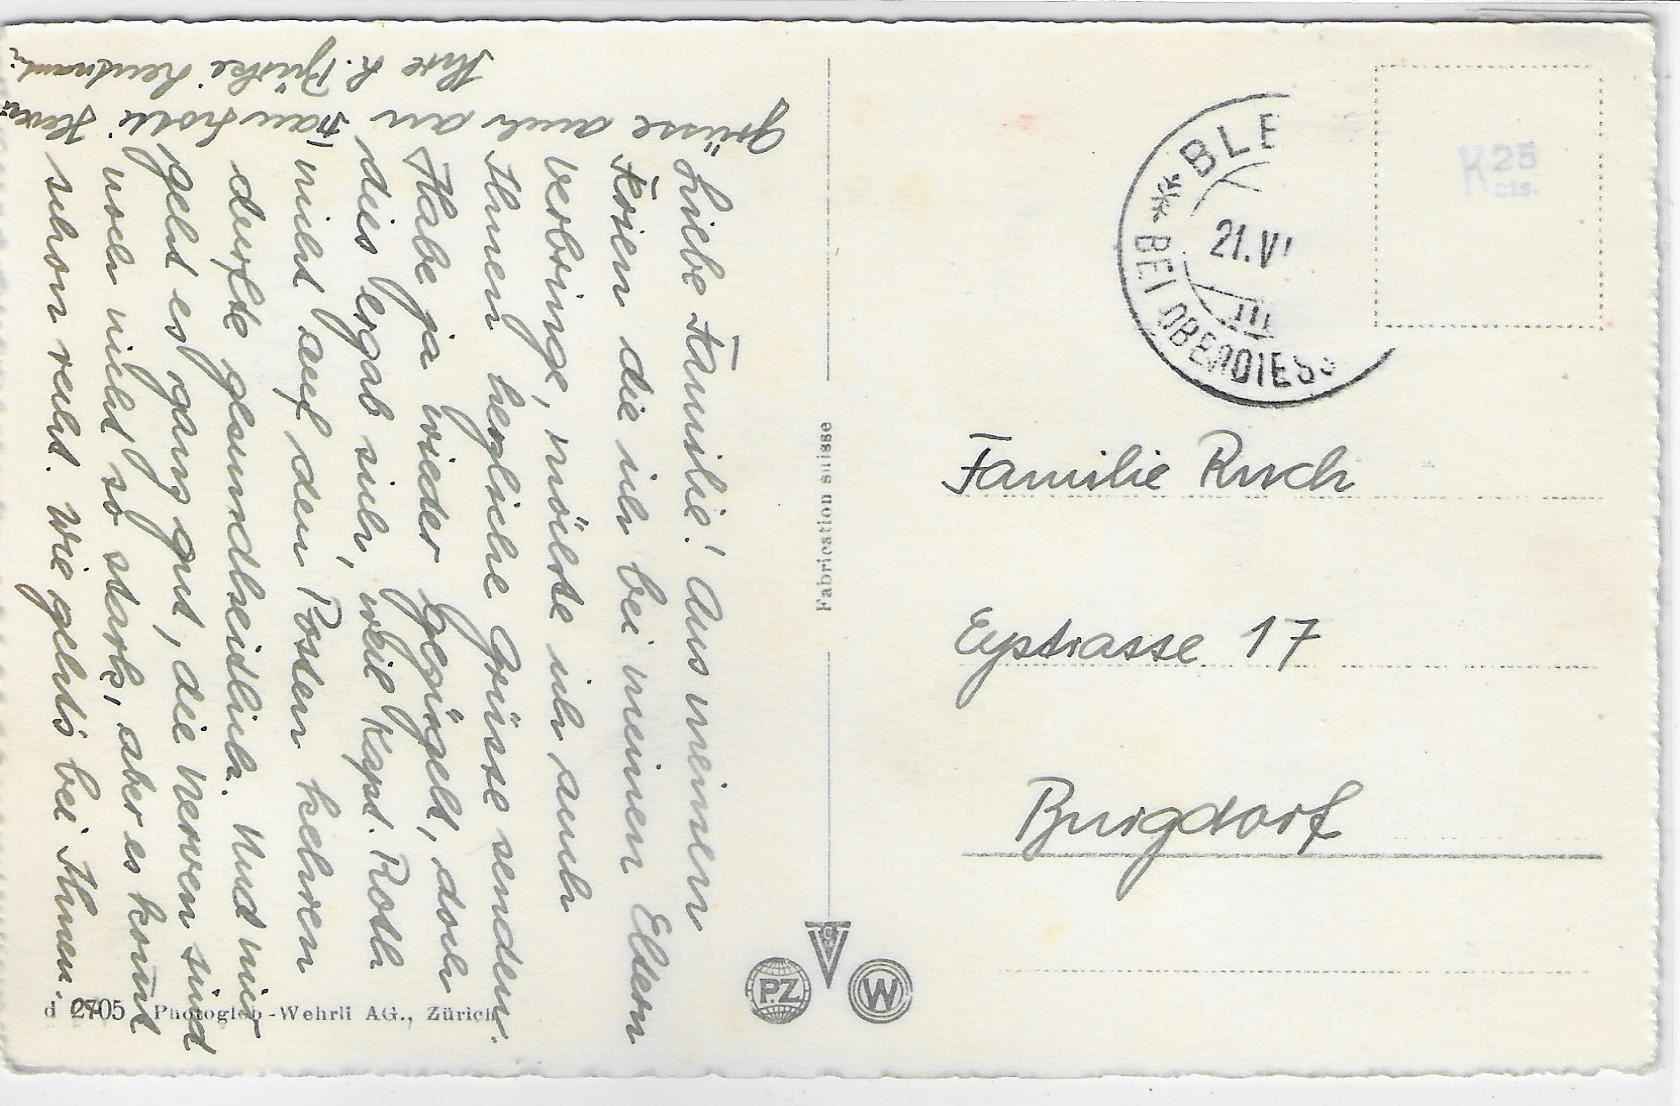 Liebe Familie! Aus meinen
Ferien die ich bei meinen Eltern
verbringe, möchte ich auch
Ihnen herzliche Grüsse senden.
Habe ja wieder gegügelt, doch
dies ergab sich, weil Kaps. Roth
nicht auf den Posten kehren
durfte gesundheitlich. Und mir
geht es ganz gut, die Nerven sind
noch nicht so stark, aber es kommt
schon recht. Wie gehts bei Ihnen.
Grüsse auch an Frau
Ihre
Fabrication suisse
d 2705 Photoglob-Wehrli AG., Zürich
PZ
W
BLE
BEI OBERDIESS
21.V
K 25
cts.
Familie Ruch
Eystrasse 17
Burgdorf